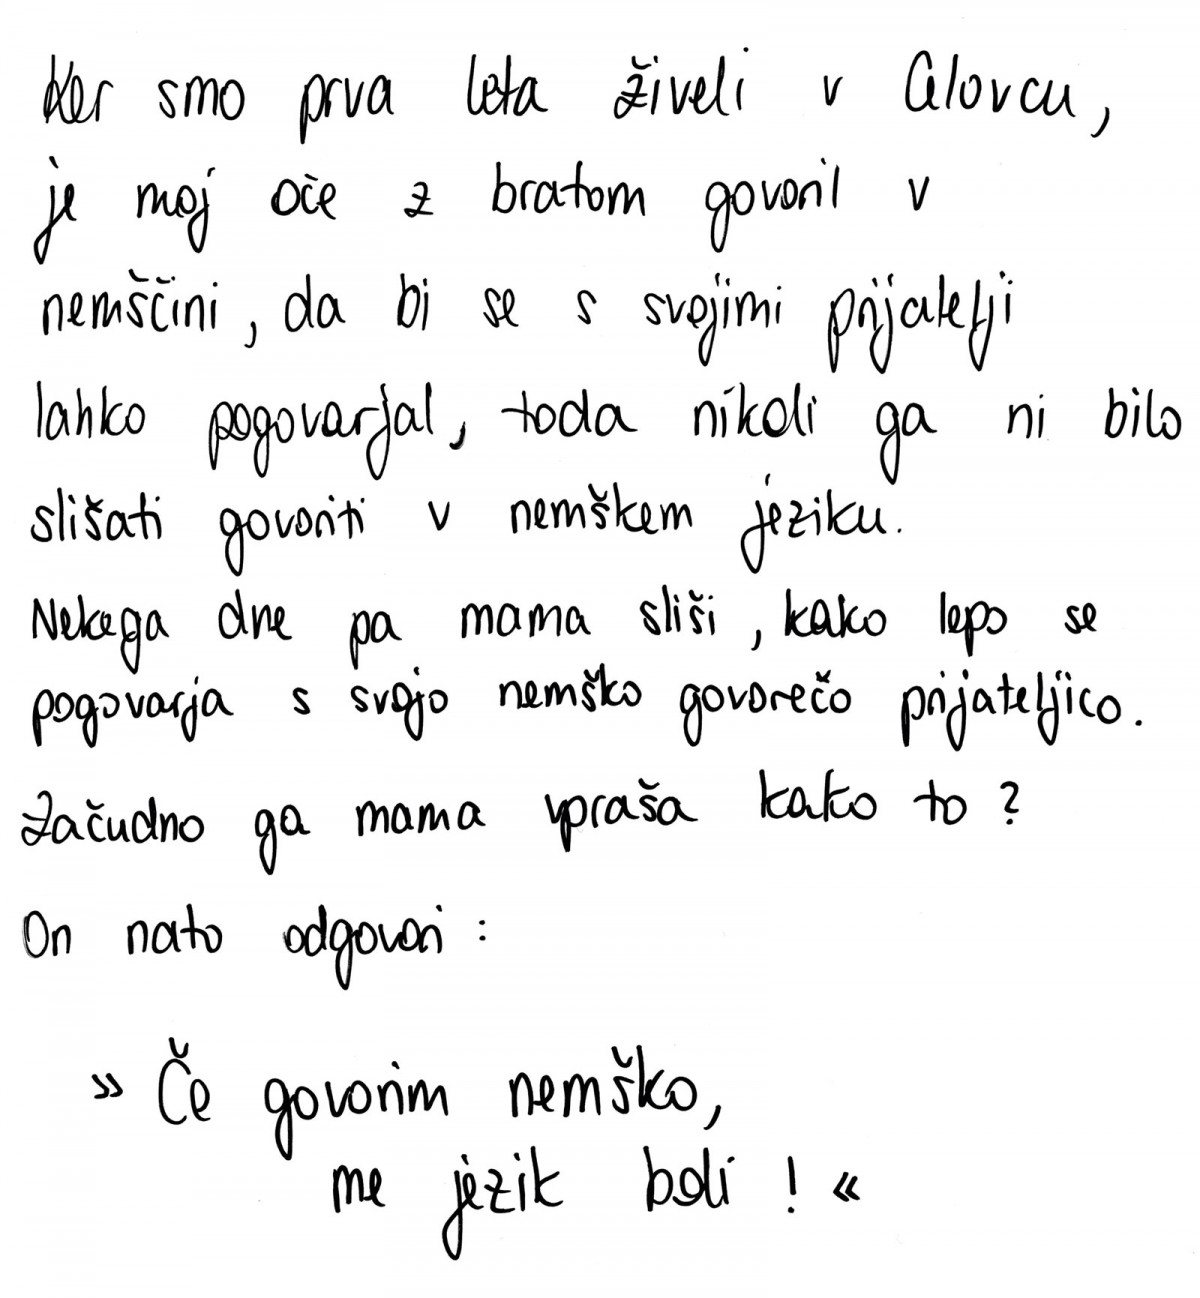 Ker smo prva leta živeli v Celovcu,
je moj oče z bratom govoril v
nemščini, da bi se s svojimi prijatelji
lahko pogovarjal, toda nikoli ga ni bilo
slišati govoriti v nemškem jeziku.
Nekega dne pa mama sliši, kako lepo se
pogovarja s svojo nemško govorečo prijateljico.
Začudno ga mama vpraša kako to?
On nato odgovori:
»Če govorim nemško,
me jezik boli!«